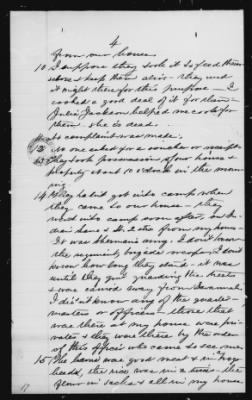 4
from our house
10 I suppose they took it to feed them
selves & keep them alive - they used
it right there for this purpose - I
cooked a good deal of it for them -
Julia Jackson helped me cook for
them. she is dead.
No complaint was made.
No one asked for a voucher or receipt
They took possession of our house &
property about 10 o'clock in the morn
ing
14 They had it got into camp when
they came to our house - they
went into camp soon after, in
dian lane & St. 2 from my house -
It was Sherman's army. I don't know
the regiment brigade or corps. I don't
know how long they staid - it was
until they got guarding the streets
& was carried away from Savannah
I didn't know any of the quarter-
masters or officers - those that
was there at my house was pri
vates & they were there by the order
of the officer who came to see me
15 The bacon was good meat & in hogs
heads, the rice was in a - the
flour in sacks & all in my house
17